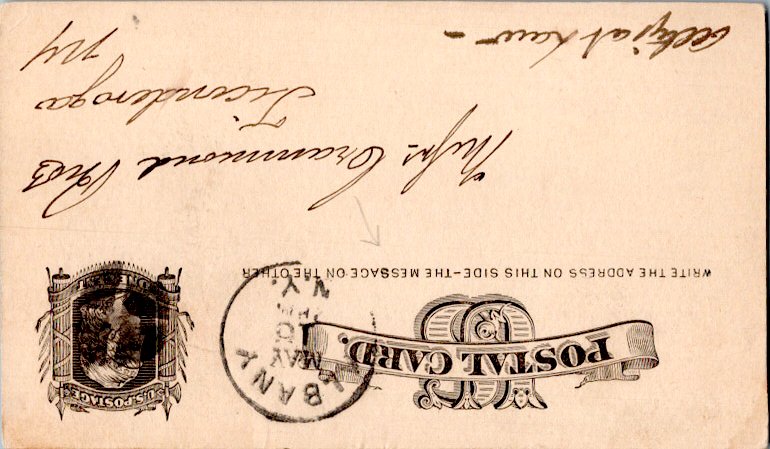 POSTAL CARD.
WRITE THE ADDRESS ON THIS SIDE-THE MESSAGE ON THE OTHER
U.S. POSTAGE
ONE CENT
ALBANY
MAY
N.Y.
Crammond Bros
Ticonderoga
NY
at Law -